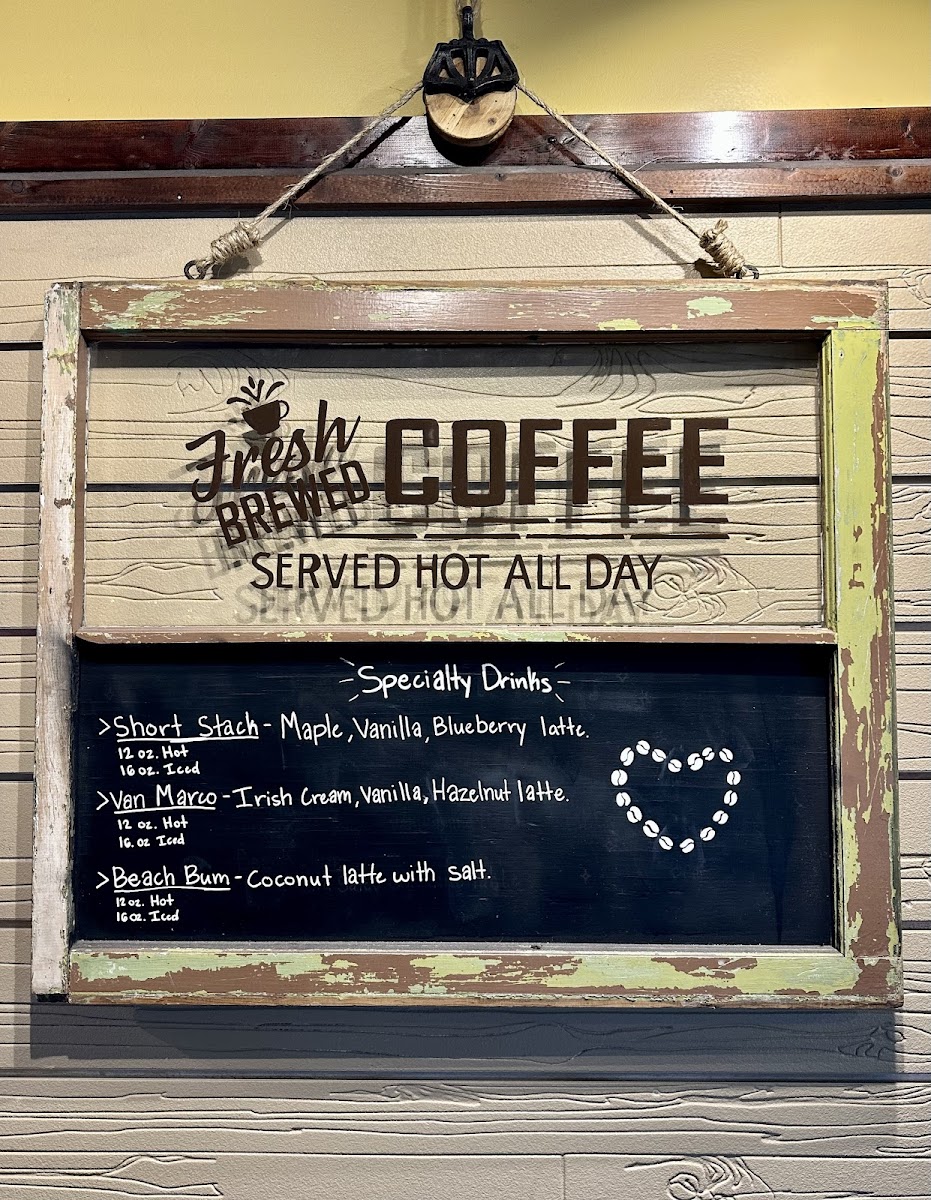 Fresh
BREWED
COFFEE
SERVED HOT ALL DAY
Specialty Drinks
>Short Stack - Maple, Vanilla, Blueberry latte.
12 oz. Hot
16 oz. Iced
>Van Marco - Irish Cream, Vanilla, Hazelnut latte.
12 oz. Hot
16. oz Iced
>Beach Bum - Coconut latte with salt.
12 oz. Hot
16 oz. Iced